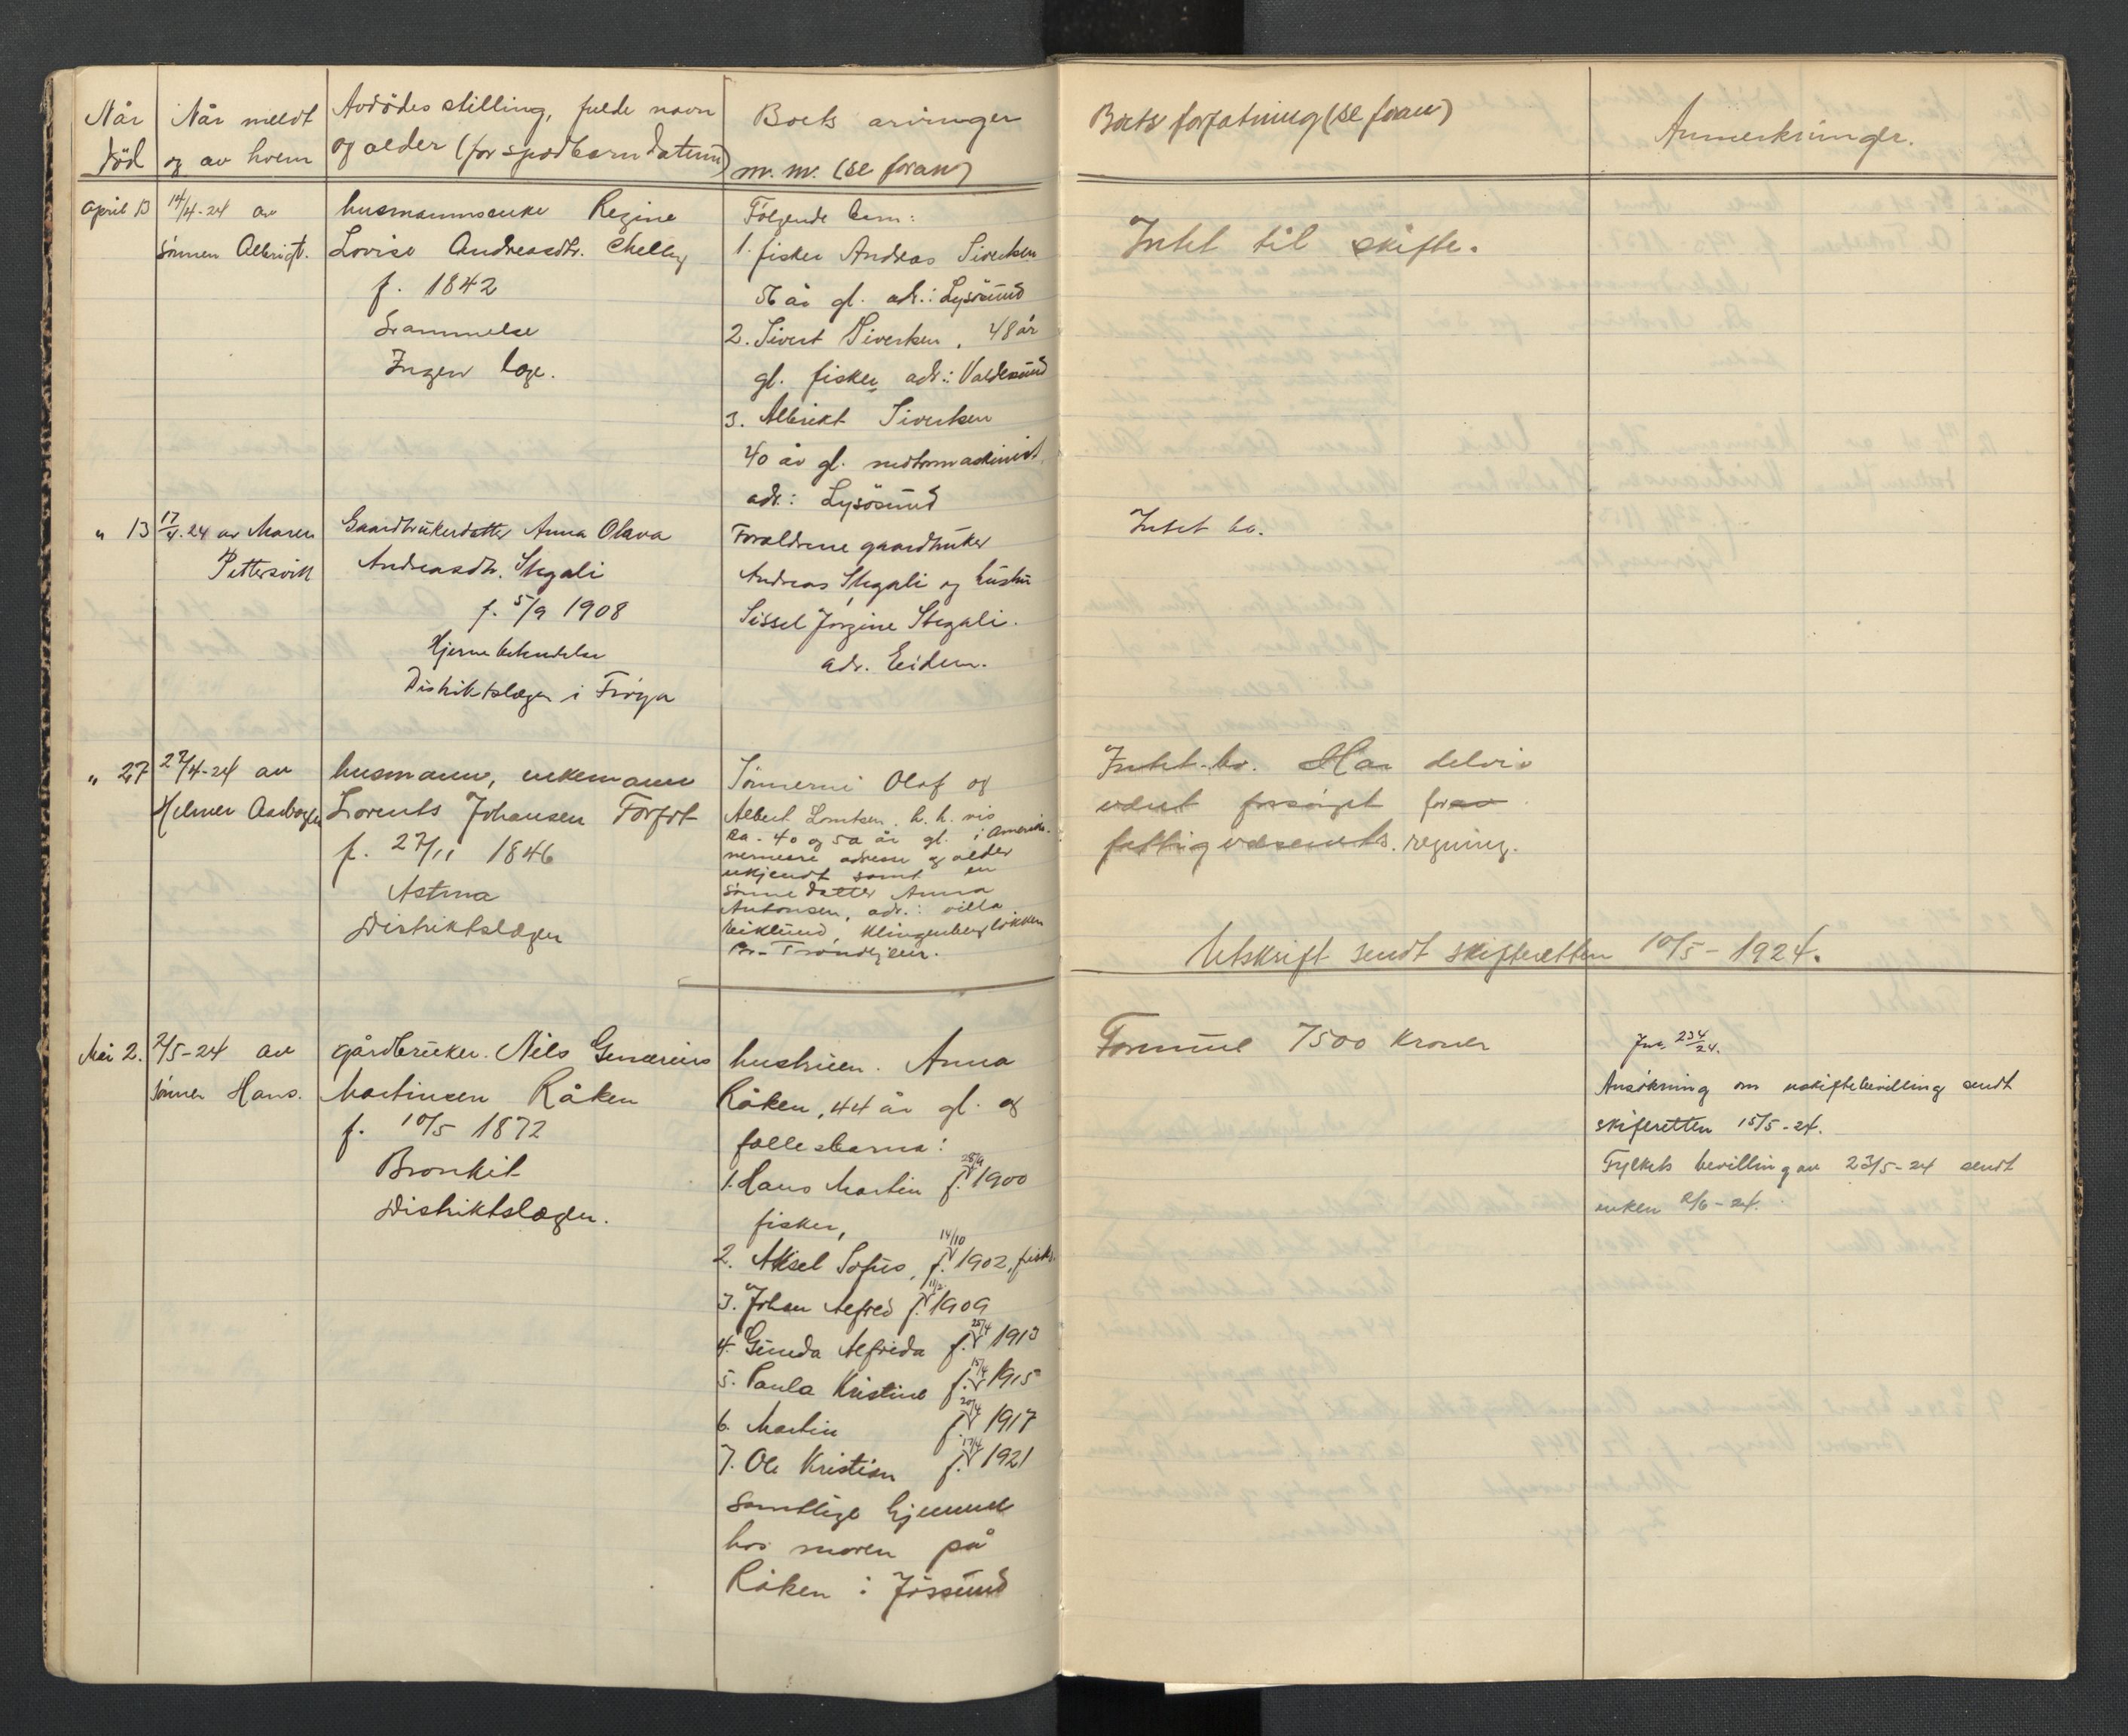 Når
död
Når meldt
og av hvem
Avdödes stilling, fulde navn
og alder (for spædbarn datum)
Boets arvinger
m. m. (se foran)
Boets forfatning (se foran)
Anmerkninger.
April 13
14/4-24 av
sönnen Albrigt.
husmannsenke Regine
Lovise Andreasdtr.
f. 1842
Ingen læge.
Følgende barn:
1. fisker Andreas Sivertsen
56 år gl. adr.: Lysösund
2. Sivert Sivertsen, 48 år
gl. fisker adr.: Valdersund
3. Albrikt Sivertsen
40 år gl. motormaskinist
adr.: Lysösund
Intet til skifte.
" 13
17/4-24 av Maren
Pettersvik
Gaardbrukerdatter Anna Olava
Andreasdtr. Stegali
f. 5/9 1908
Hjernebetendelse
Distriktslægen i Fröya
Forældrene gaardbruker
Andreas Stegali og hustru
Sissel Jörgine Stegali.
adr. Eiden.
Intet bo.
" 27
27/4-24 av
Helmer
husmann, enkemann
Lorents Johansen Forfot
f. 27/11 1846
Astma
Distriktslægen
Sönnerne Olaf og
Albert Lorntsen, h. h. vis
ca. 40 og 50 år gl. i Amerika.
nermere adresse og alder
ukjendt samt en
sönnedatter Anna
Antonsen, adr.: villa
Eiklund, Klingenberg lökken
pr. Trondhjem.
Intet bo. Har delvis
været forsörget for
fattigvæsenets regning.
Utskrift sendt skifteretten 10/5-1924.
Mai 2.
2/5-24 av
sönnen Hans.
gårdbruker. Nils Gunerius
Martinsen Råken
f. 10/5 1872
Bronkit
Distriktslægen.
hustruen. Anna
Råken, 44 år gl. og
fællesbarna:
1. Hans Martin f. 28/9 1900
fisker,
2. Aksel Sofus, f. 14/10 1902, fisker.
3. Johan Alfred f. 1909
4. Gunda Alfrida f. 25/4 1913
5. Paula Kristine f. 15/4 1915
6. Martin f. 20/4 1917
7. Ole Kristian f. 17/4 1921
samtlige hjemme
hos moren på
Råken i Jössund
Formue 7500 kroner
Jnr. 234/24.
Ansökning om uskiftebevilling sendt
skifteretten 15/5-24.
Fylkets bevilling av 23/5-24 sendt
enken 2/6-24.